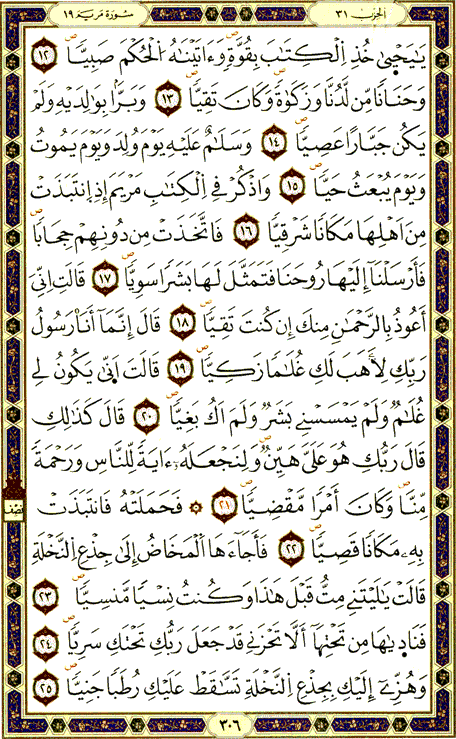 الحزب ٣١
سورة مريم ١٩
يَٰيَحْيىٰ خُذِ اِلْكِتَٰبَ بِقُوَّةٖ وَءَاتَيْنَٰهُ اُلْحُكْمَ صَبِيّاٗ ١٢
وَحَنَاناٗ مِّن لَّدُنَّا وَزَكَوٰةٗ وَكَانَ تَقِيّاٗ ١٣ وَبَرّاَۢ بِوَٰلِدَيْهِ وَلَمْ
يَكُن جَبَّاراً عَصِيّاٗ ١٤ وَسَلَٰمٌ عَلَيْهِ يَوْمَ وُلِدَ وَيَوْمَ يَمُوتُ
وَيَوْمَ يُبْعَثُ حَيّاٗ ١٥ وَاذْكُرْ فِي اِلْكِتَٰبِ مَرْيَمَ إِذِ اِنتَبَذَتْ
مِنَ اَهْلِهَا مَكَاناٗ شَرْقِيّاٗ ١٦ فَاتَّخَذَتْ مِن دُونِهِمْ حِجَاباٗ
فَأَرْسَلْنَآ إِلَيْهَا رُوحَنَا فَتَمَثَّلَ لَهَا بَشَراٗ سَوِيّاٗ ١٧ قَالَتِ اِنِّيَ
أَعُوذُ بِالرَّحْمَٰنِ مِنكَ إِن كُنتَ تَقِيّاٗ ١٨ قَالَ إِنَّمَآ أَنَا رَسُولُ
رَبِّكِ لِأَهَبَ لَكِ غُلَٰماٗ زَكِيّاٗ ١٩ قَالَتَ اَنّ۪يٰ يَكُونُ لِے
غُلَٰمٞ وَلَمْ يَمْسَسْنِے بَشَرٞ وَلَمَ اَكُ بَغِيّاٗ ٢٠ قَالَ كَذَٰلِكِ
قَالَ رَبُّكِ هُوَ عَلَيَّ هَيِّنٞ وَلِنَجْعَلَهُۥٓ ءَايَةٗ لِّلنَّاسِ وَرَحْمَةٗ
مِّنَّا وَكَانَ أَمْراٗ مَّقْضِيّاٗ ٢١ ۞ فَحَمَلَتْهُ فَانتَبَذَتْ
نصف
بِهِۦ مَكَاناٗ قَصِيّاٗ ٢٢ فَأَجَآءَهَا اَلْمَخَاضُ إِلَىٰ جِذْعِ اِلنَّخْلَةِ
قَالَتْ يَٰلَيْتَنِے مِتُّ قَبْلَ هَٰذَا وَكُنتُ نِسْياٗ مَّنسِيّاٗ ٢٣
فَنَاد۪يٰهَا مِن تَحْتِهَآ أَلَّا تَحْزَنِے قَدْ جَعَلَ رَبُّكِ تَحْتَكِ سَرِيّاٗ ٢٤
وَهُزِّےٓ إِلَيْكِ بِجِذْعِ اِلنَّخْلَةِ تَسَّٰقَطْ عَلَيْكِ رُطَباٗ جَنِيّاٗ ٢٥
٣٠٦